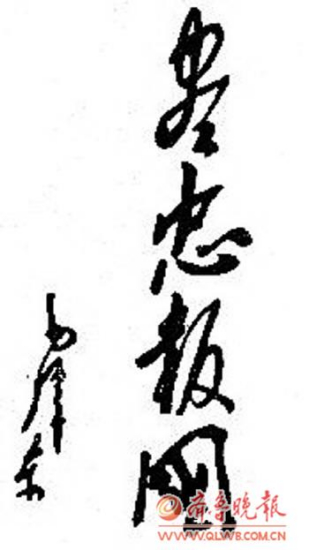 尽忠报国
毛泽东
齐鲁晚报
WWW.QLWB.COM.CN